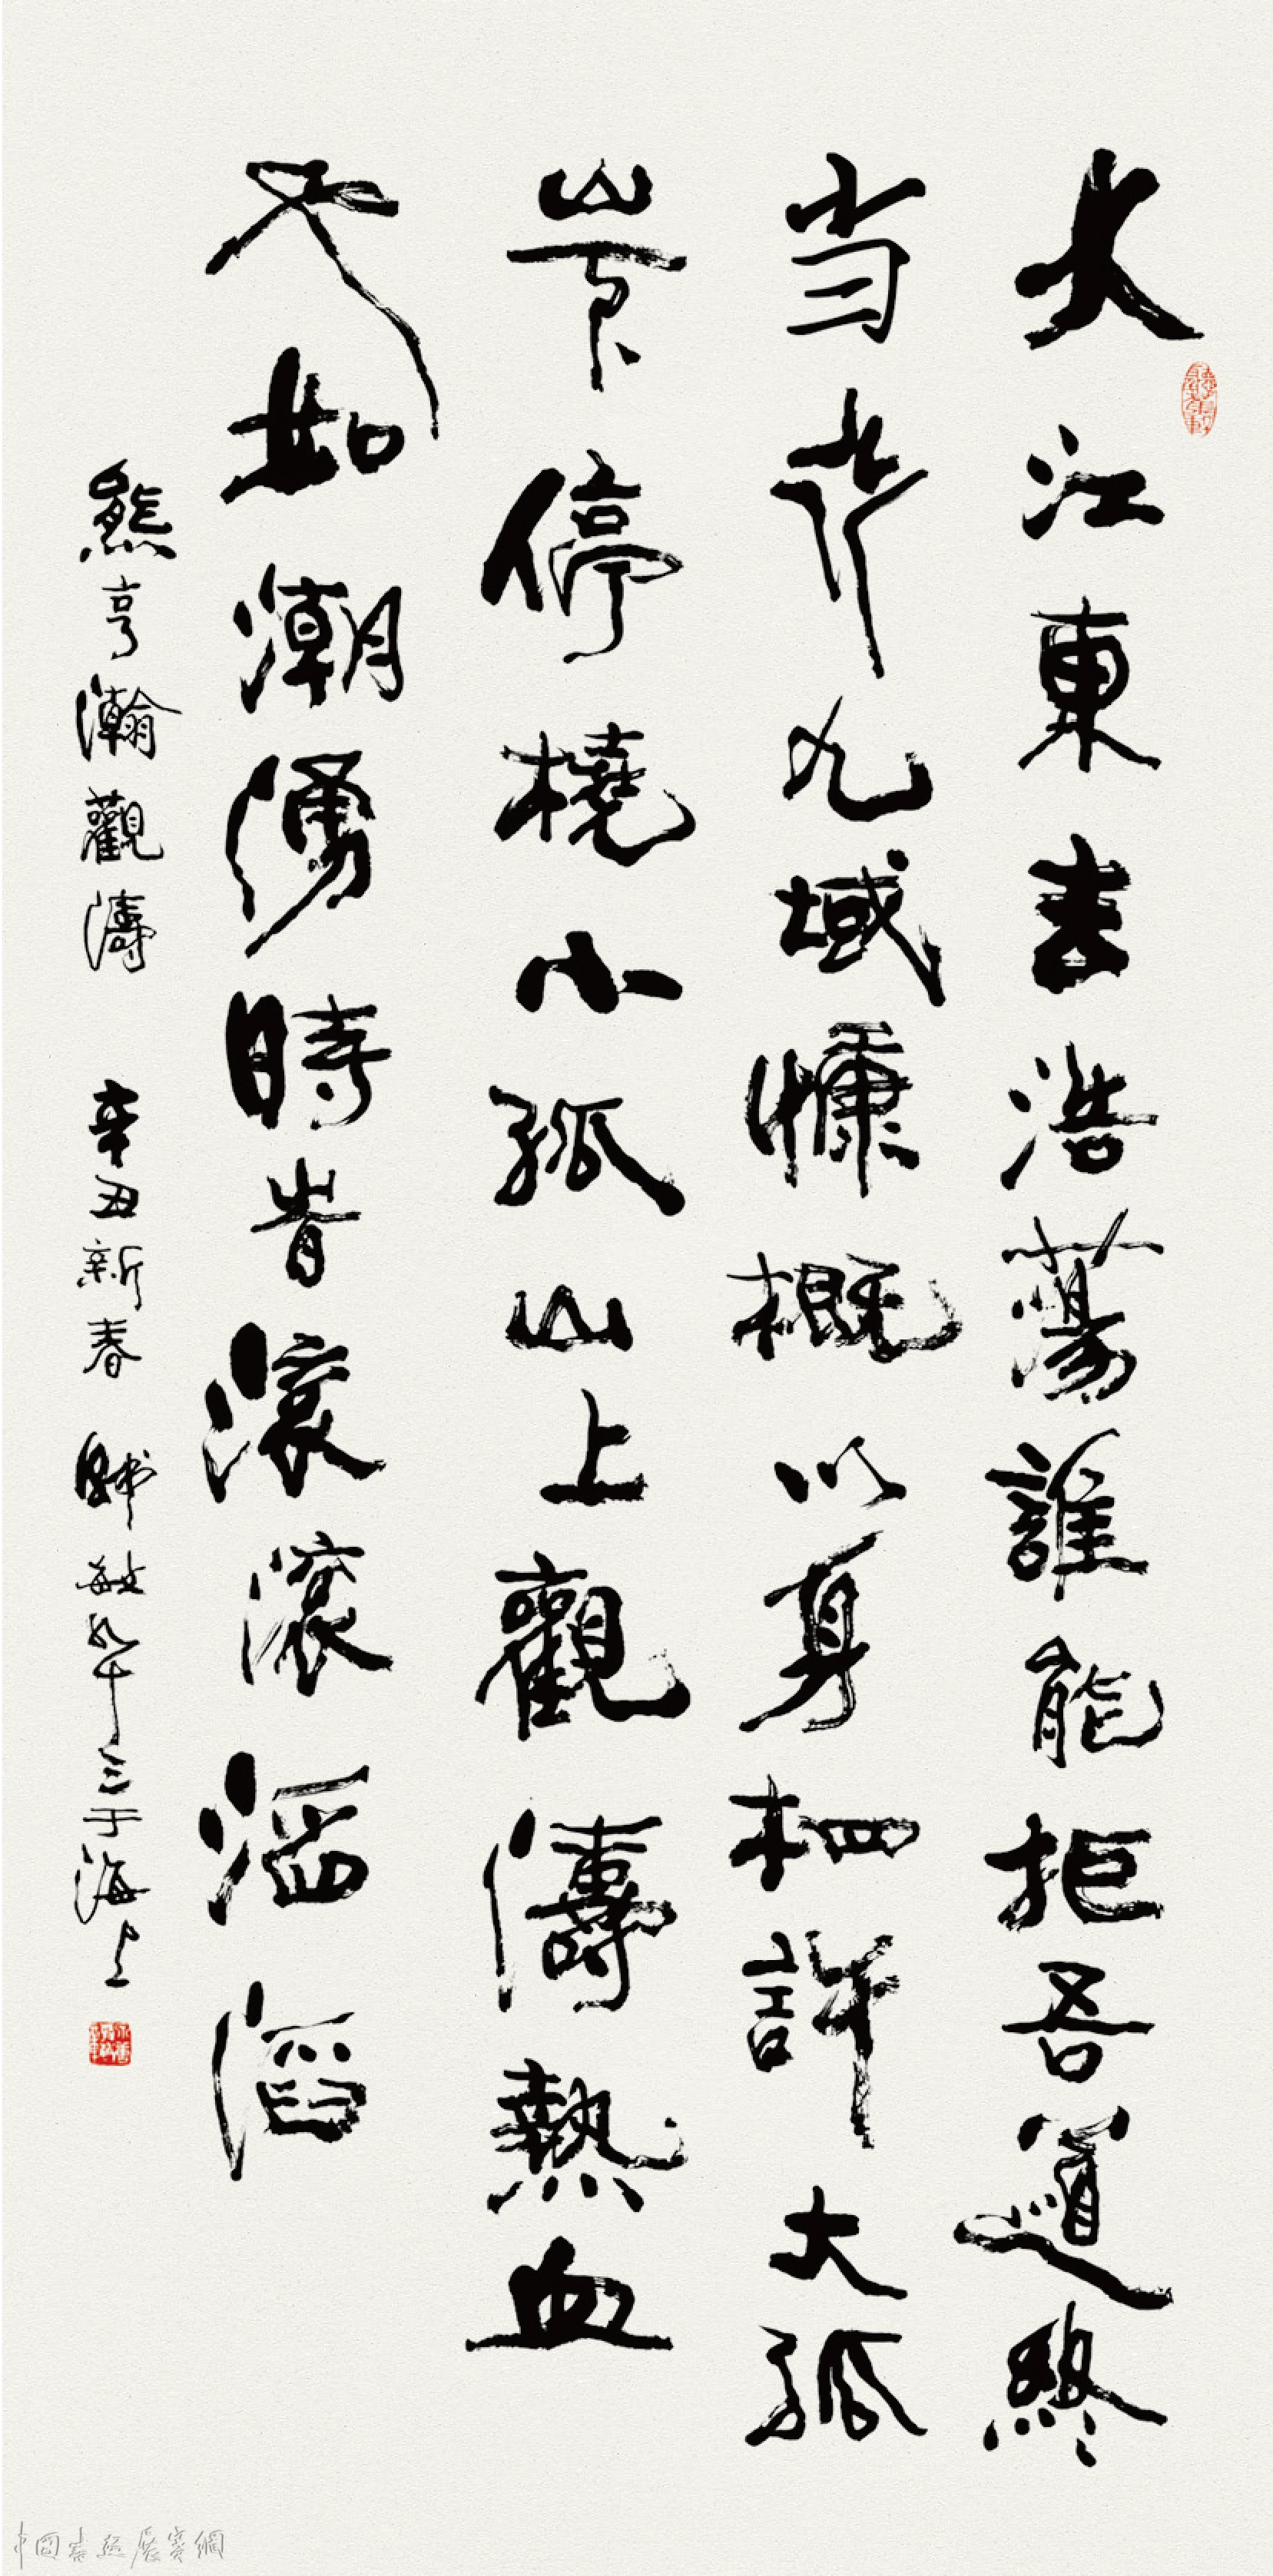 大江東去浩蕩誰能拒吾道終
当行九域慷概以身相許大孤
山下停橈小孤山上觀濤熱血
也如潮湧時旹滾滾滔滔
熊亨瀚觀濤 辛丑新春 韩敏九十三于海上
中國書法展賽網